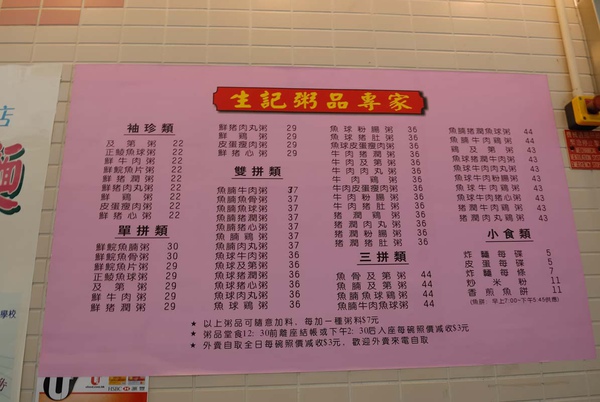 生記粥品專家
袖珍類
及第粥 22
正鯪魚球粥 22
鮮牛肉粥 22
鮮鯇魚片粥 22
鮮豬潤粥 22
鮮豬肉丸粥 22
鮮鷄粥 22
皮蛋瘦肉粥 22
鮮豬心粥 22
單拼類
鮮鯇魚腩粥 30
鮮鯇魚骨粥 30
鮮鯇魚片粥 29
正鯪魚球粥 29
及第粥 29
鮮牛肉粥 29
鮮豬潤粥 29
鮮豬肉丸粥 29
鮮鷄粥 29
皮蛋瘦肉粥 29
鮮豬心粥 29
雙拼類
魚腩牛肉粥 37
魚腩魚骨粥 37
魚腩魚球粥 37
魚腩豬潤粥 37
魚腩豬心粥 37
魚腩鷄粥 37
魚腩肉丸粥 37
魚球牛肉粥 36
魚球及第粥 36
魚球豬潤粥 36
魚球豬心粥 36
魚球肉丸粥 36
魚球鷄粥 36
魚球粉腸粥 36
魚球豬肚粥 36
魚球皮蛋瘦肉粥 36
牛肉豬潤粥 36
牛肉及第粥 36
牛肉肉丸粥 36
牛肉鷄粥 36
牛肉皮蛋瘦肉粥 36
牛肉豬心粥 36
牛肉豬肚粥 36
豬潤鷄粥 36
豬潤肉丸粥 36
豬潤粉腸粥 36
豬潤豬肚粥 36
三拼類
魚骨及第粥 44
魚腩及第粥 44
魚腩魚球鷄粥 44
魚腩牛肉魚球粥 44
魚腩豬潤魚球粥 44
魚腩牛肉鷄粥 44
鷄及第粥 43
魚球豬潤牛肉粥 43
魚球及第粥 43
魚球牛肉粉腸粥 43
魚球牛肉鷄粥 43
豬潤牛肉鷄粥 43
豬潤肉丸鷄粥 43
小食類
炸麵每碟 5
皮蛋每碟 5
炸麵每條 7
炒米粉 11
香煎魚餅 11
(魚餅:早上7:00-下午5:45供應)
★ 以上粥品可隨意加料，每加一種粥料$7元
★ 粥品堂食12:30前離座結帳或下午2:30后入座每碗照價減收$3元
★ 外賣自取全日每碗照價減收$3元，歡迎外賣來電自取
店
麵
學校
HSBC